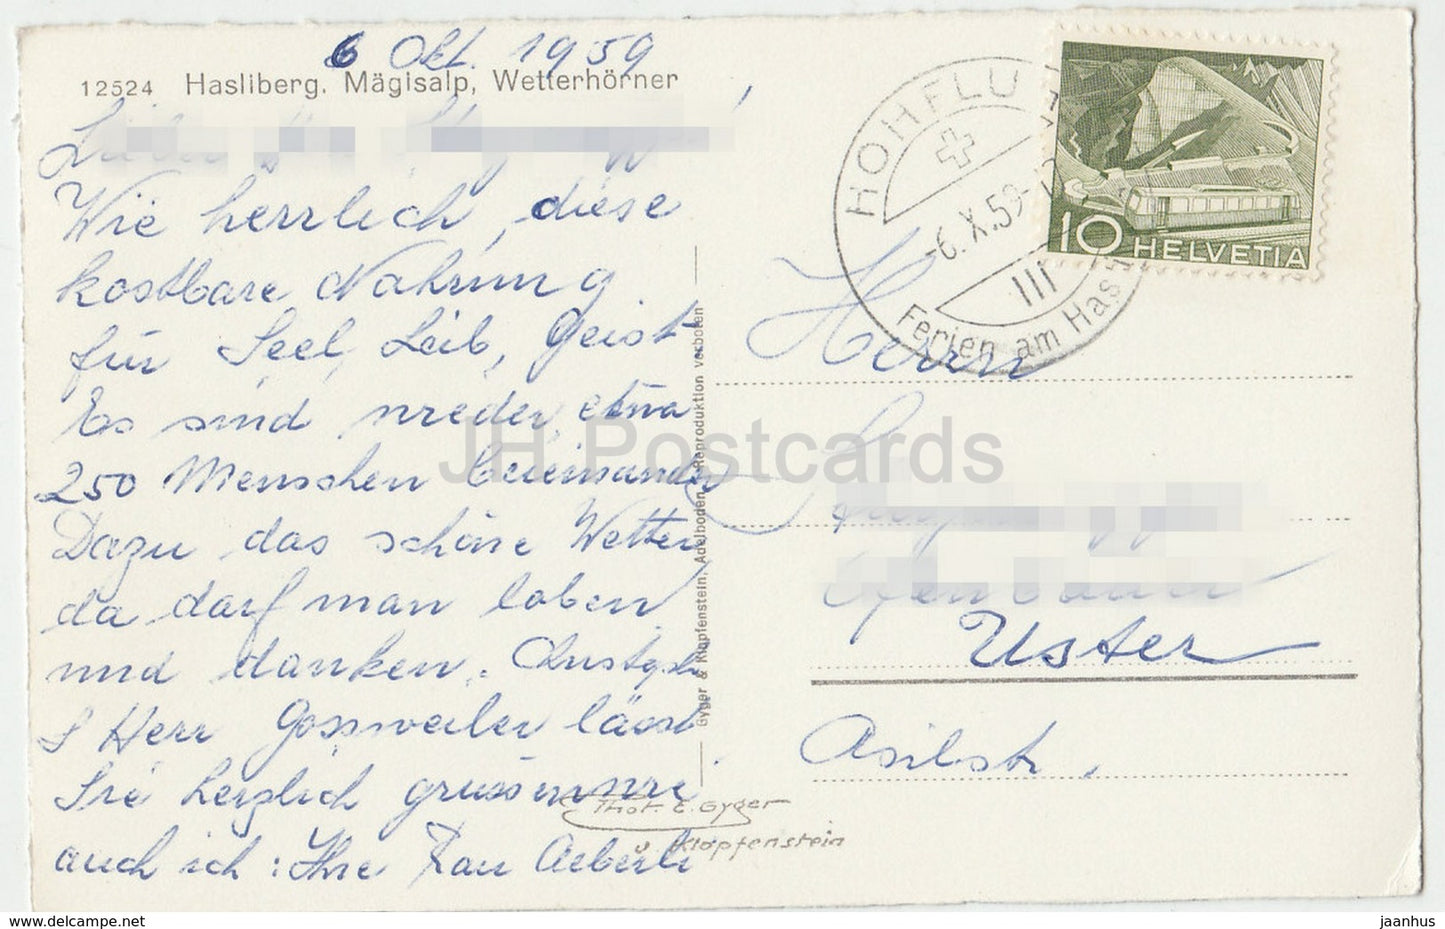 6 Okt. 1959
12524 Hasliberg. Mägisalp, Wetterhörner
Wie herrlich, diese
kostbare Nahrung
für Seel, Leib, Geist
Es sind wieder etwa
250 Menschen beieinander
Dazu das schöne Wetter
da darf man loben
und danken.
S Herr Gossweiler lässt
Sie herzlich grüssen wie
auch ich: Ihre Frau Aeberli
Gyger & Klopfenstein, Adelboden, Reproduktion verboten
Phot. E. Gyger
u Klopfenstein
HOHFLUH
-6.X.59-
III
Ferien am Hasli
10 HELVETIA
Herrn
Uster
Asilstr.
JH Postcards
www.delcampe.net
jaanhus